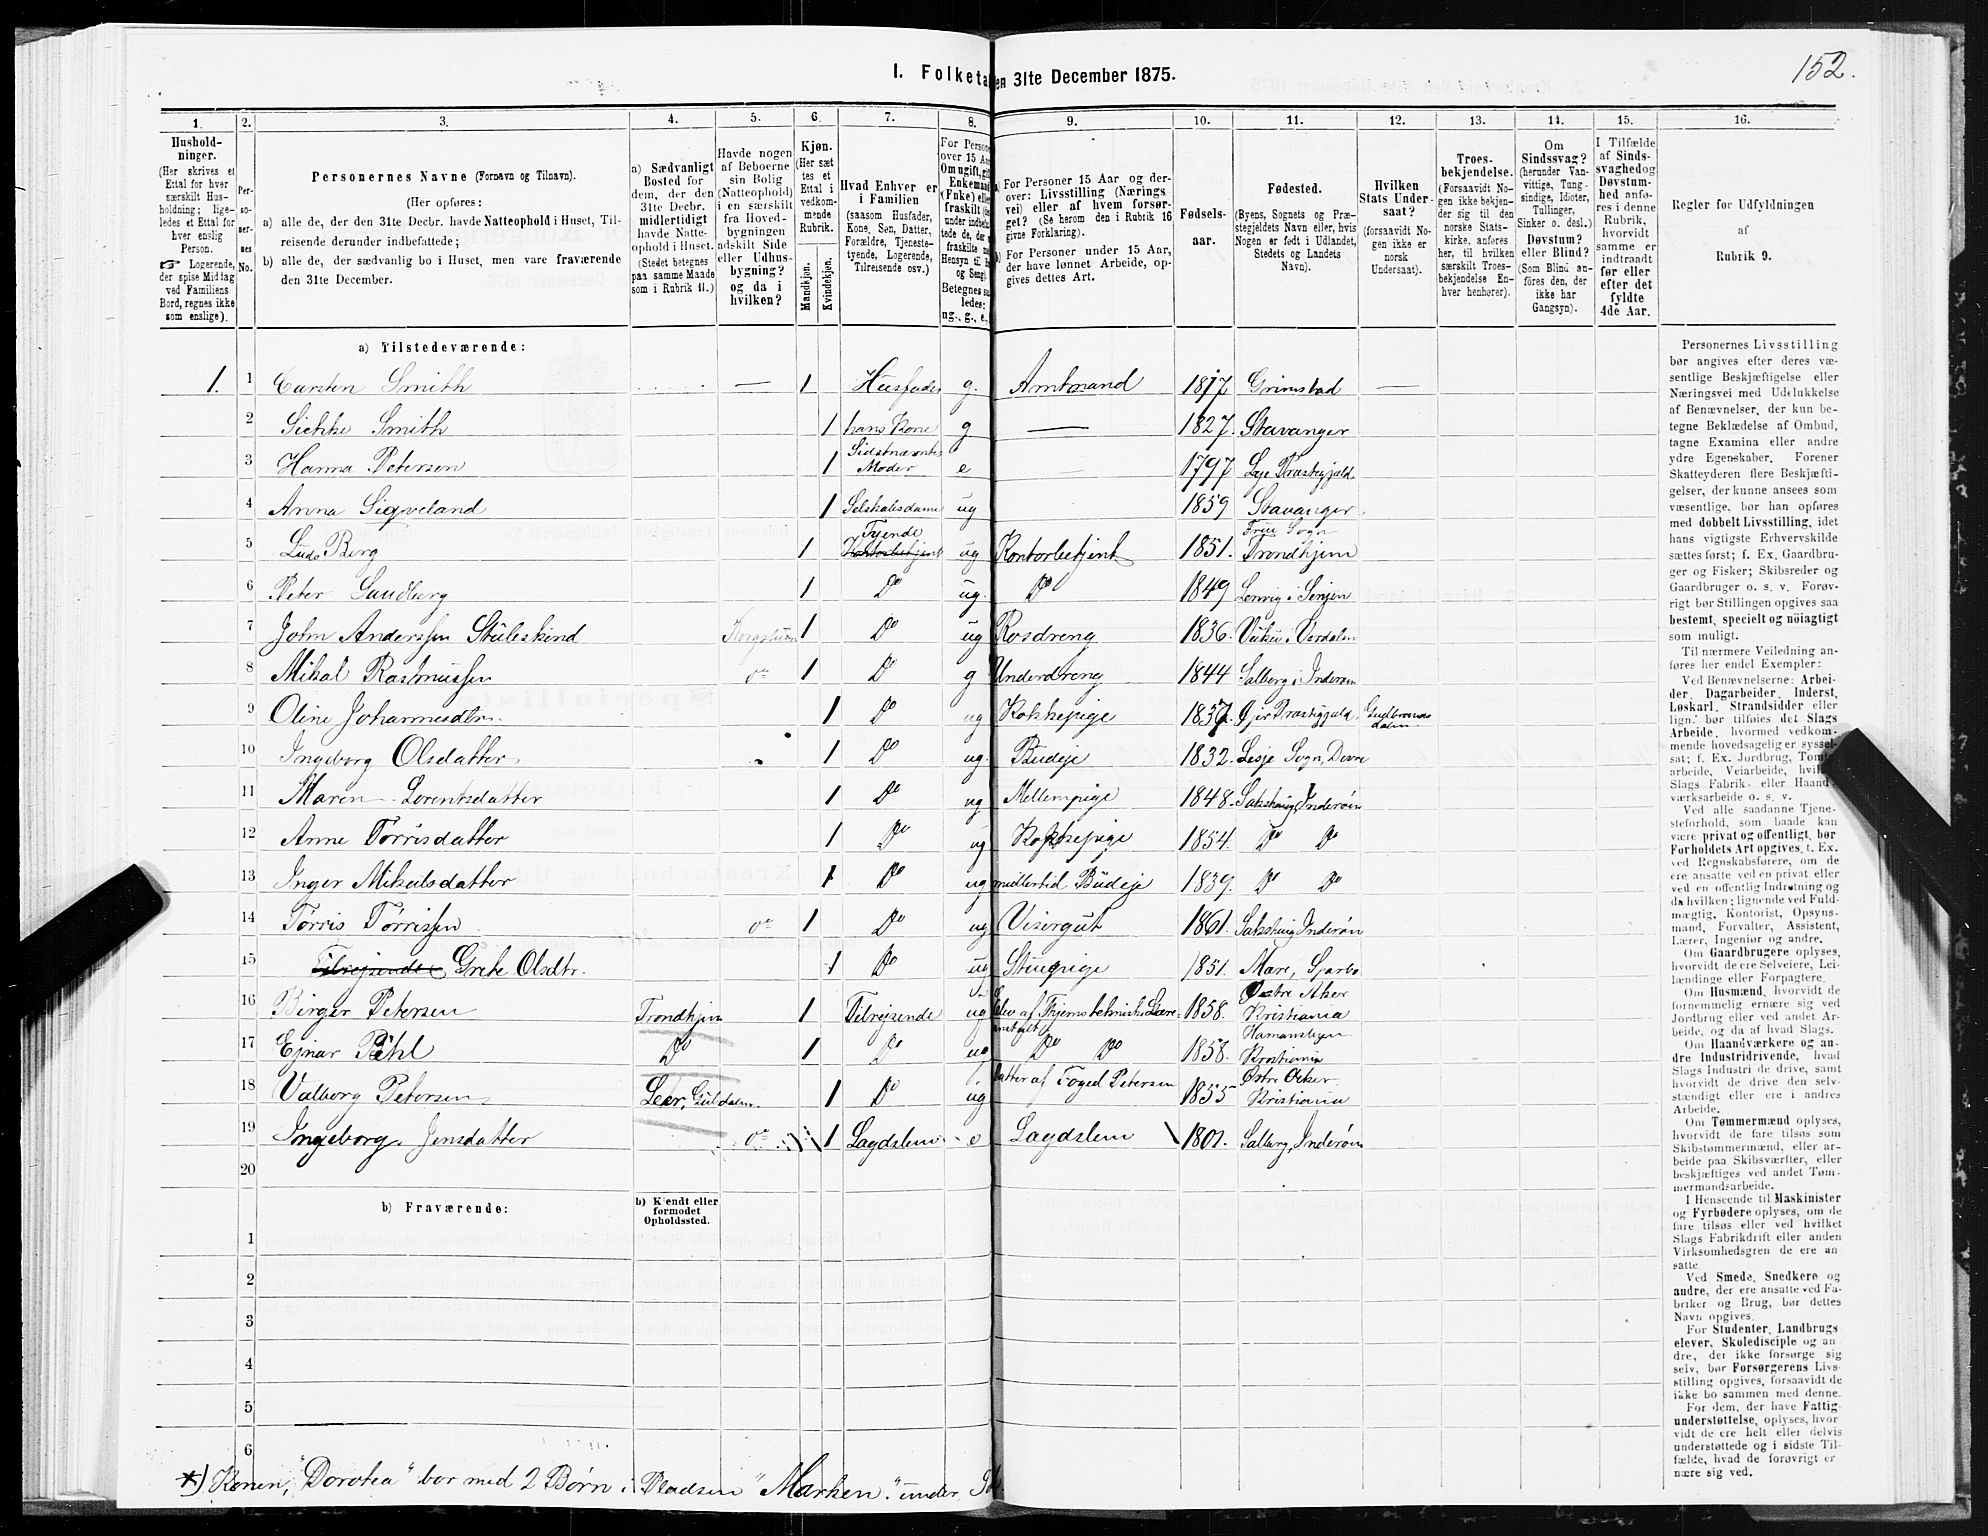 152.
I. Folketal den 31te December 1875.
1. 2. 3. 4. 5. 6. 7. 8. 9. 10. 11. 12. 13. 14. 15. 16.
Husholdninger.
(Her skrives et
Ettal for hver
særskilt Hus-
holdning; lige-
ledes et Ettal for
hver enslig
Person.
☞ Logerende,
der spise Middag
ved Familiens
Bord, regnes ikke
som enslige).
Per-
so-
ner-
nes
No.
Personernes Navne (Fornavn og Tilnavn).
(Her opføres:
a) alle de, der den 31te Decbr. havde Natteophold i Huset, Til-
reisende derunder indbefattede;
b) alle de, der sædvanlig bo i Huset, men vare fraværende
den 31te December.
a) Sædvanligt
Bosted for
dem, der den
31te Decbr.
midlertidigt
havde Natte-
ophold i Huset.
(Stedet betegnes
paa samme Maade
som i Rubrik 11.)
Havde nogen
af Beboerne
sin Bolig
(Natteophold)
i en særskilt
fra Hoved-
bygningen
adskilt Side
eller Udhus-
bygning?
og da i
hvilken?
Kjøn.
(Her sæt-
tes et
Ettal i
vedkom-
mende
Rubrik.
Mandkjøn.
Kvindekjøn.
Hvad Enhver er
i Familien
(saasom Husfader,
Kone, Søn, Datter,
Forældre, Tjeneste-
tyende, Logerende,
Tilreisende osv.)
For Person
over 15 Aar
Om ugift, gift
Enkemand
(Enke) eller
fraskilt
Betegnes saa-
ledes:
ug., g., e.,
a) For Personer 15 Aar og der-
over: Livsstilling (Nærings
vei) eller af hvem forsør-
get? (Se herom den i Rubrik 16
givne Forklaring).
b) For Personer under 15 Aar,
der have lønnet Arbeide, op-
gives dettes Art.
Fødsels-
aar.
Fødested.
(Byens, Sognets og Præ-
stegjeldets Navn eller, hvis
Nogen er født i Udlandet,
Stedets og Landets
Navn).
Hvilken
Stats Under-
saat?
(forsaavidt No-
gen ikke er
norsk
Undersaat).
Troes-
bekjendelse.
(Forsaavidt No-
gen ikke bekjen-
der sig til den
norske Stats-
kirke, anføres
her, til hvilken
særskilt Troes-
bekjendelse En-
hver henhører).
Om
Sindssvag?
(herunder Van-
vittige, Tung-
sindige, Idioter,
Tullinger,
Sinker o. desl.)
Døvstum?
eller Blind?
(Som Blind an-
føres den, der
ikke har
Gangsyn).
I Tilfælde
af Sinds-
svaghed og
Døvstum-
hed anfø-
res i denne
Rubrik,
hvorvidt
samme er
indtraadt
før eller
efter det
fyldte
4de Aar.
Regler for Udfyldningen
af
Rubrik 9.
a) Tilstedeværende:
1. 1 Carsten Smith — 1 Husfader g. Amtmand 1817 Grimstad —
2 Siekke Smith 1 hans Kone g — 1827. Stavanger
3 Hanna Petersen 1 Sidstnævntes Moder e — 1797 Præstegjeld
4 Anna Sigveland 1 Selskabsdame ug 1859 Stavanger
5 Berg 1 Tjende Kontorbetjent ug Kontorbetjent 1851. Frue Sogn Trondhjem
6 Peter Sundberg 1 Do ug. Do 1849 Lenvig i Senjen
7 John Anderssen Stuleskind 1 Do ug Gosdreng 1836. Vukü i Verdalen
8 Mikal Rasmussen do 1 Do g Underdreng 1844 Salberg i Inderøen
9 Oline Johannesdtr. 1 Do ug Kokkepige 1837. Præstegjeld. Gudbrandsdalen
10 Ingeborg Olsdatter 1 Do ug. Budeje 1832. Lesje Sogn, Dovre
11 Maren Lorentsdatter 1 Do ug Mellempige 1848. Sakshaug Inderøen
12 Anne Tørrisdatter 1 Do ug Kokkepige 1854. Do Do
13 Inger Mikalsdatter 1 Do ug midlertid Budeje 1839. Do Do
14 Tørris Tørrissen do 1 Do ug Visergut 1861. Sakshaug Inderøen
15 Tilrejsende Grete Olsdtr. 1 Do ug Stuepige 1851. Mare, Sparbo
16 Birger Petersen Trondhjem 1 Tilrejsende ug Elev af Thjems tekniske Læreanstalt 1858. Østre Aker Kristiania
17 Ejnar Pihl Do 1 Do ug Do Do 1858. Kristiania
18 Valborg Petersen Leer, Guldalen. 1 Do ug Datter af Foged Petersen 1855 Østre Aker Kristiania
19 Ingeborg Jensdatter do 1 Lagdslem e Lagdslem 1801. Salberg, Inderøen
20
b) Fraværende:
b) Kjendt eller
formodet
Opholdssted.
1
2
3
4
5
6
*) Konen, "Dorotea" bor med 2 Børn i Pladsen "Marken" under
Personernes Livsstilling
bør angives efter deres væ-
sentlige Beskjæftigelse eller
Næringsvei med Udelukkelse
af Benævnelser, der kun be-
tegne Beklædelse af Ombud,
tagne Examina eller andre
ydre Egenskaber. Forener
Skatteyderen flere Beskjæfti-
gelser, der kunne ansees som
væsentlige, bør han opføres
med dobbelt Livsstilling, idet
hans vigtigste Erhvervskilde
sættes først; f. Ex. Gaardbru-
ger og Fisker; Skibsreder og
Gaardbruger o. s. v. Forøv-
rigt bør Stillingen opgives saa
bestemt, specielt og nöiagtigt
som muligt.
Til nærmere Veiledning an-
føres her endel Exempler:
Ved Benævnelserne: Arbei-
der, Dagarbeider, Inderst,
Løskarl, Strandsidder eller
lign. bør tilføies det Slags
Arbeide, hvormed vedkom-
mende hovedsagelig er syssel-
sat; f. Ex. Jordbrug, Tomte-
arbeide, Veiarbeide, hvilket
Slags Fabrik- eller Haand-
værksarbeide o. s. v.
Ved alle saadanne Tjene-
steforhold, som baade kan
være privat og offentligt, bør
Forholdets Art opgives, t. Ex.
ved Regnskabsførere, om de
ere ansatte ved en privat eller
ved en offentlig Indretning og
da hvilken; lignende ved Fuld-
mægtig, Kontorist, Opsyns-
mand, Forvalter, Assistent,
Lærer, Ingeniør og andre.
Om Gaardbrugere oplyses,
hvorvidt de ere Selveiere, Lei-
lændinge eller Forpagtere.
Om Husmænd, hvorvidt de
fornemmelig ernære sig ved
Jordbrug eller ved andet Ar-
beide, og da af hvad Slags.
Om Haandværkere og an-
dre Industridrivende, hvad
Slags Industri de drive, samt
hvorvidt de drive den selv-
stændigt eller ere i andres
Arbeide.
Om Tømmermænd oplyses,
hvorvidt de fare tilsøs som
Skibstømmermænd, eller ar-
beide paa Skibsværfter, eller
beskjæftiges ved andet Tøm-
mermandsarbeide.
I Henseende til Maskinister
og Fyrbødere oplyses, om de
fare tilsøs eller ved hvilket
Slags Fabrikdrift eller anden
Virksomhedsgren de ere an-
satte
Ved Smede, Snedkere og
andre, der ere ansatte ved Fa-
briker og Brug, bør dettes
Navn opgives.
For Studenter, Landbrugs
elever, Skoledisciple og an-
dre, der ikke forsørge sig
selv, bør Forsørgerens Livs-
stilling opgives, forsaavidt de
ikke bo sammen med denne.
For dem, der have Fattig-
understøttelse, oplyses, hvor
vidt de ere helt eller delvis
understøttede og i sidste Til-
fælde, hvad de forøvrigt er
nære sig ved.